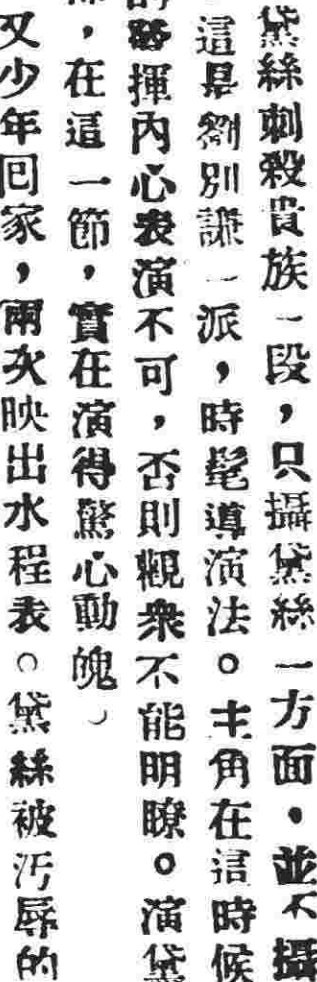 黛絲刺殺貴族一段，只攝黛絲一方面。並不攝
這是劉別謙一派，時髦導演法。主角在這時候
揮內心表演不可，否則觀衆不能明瞭。演黛
，在這一節，實在演得驚心動魄）
又少年回家，兩次映出水程表。黛絲被汚辱的